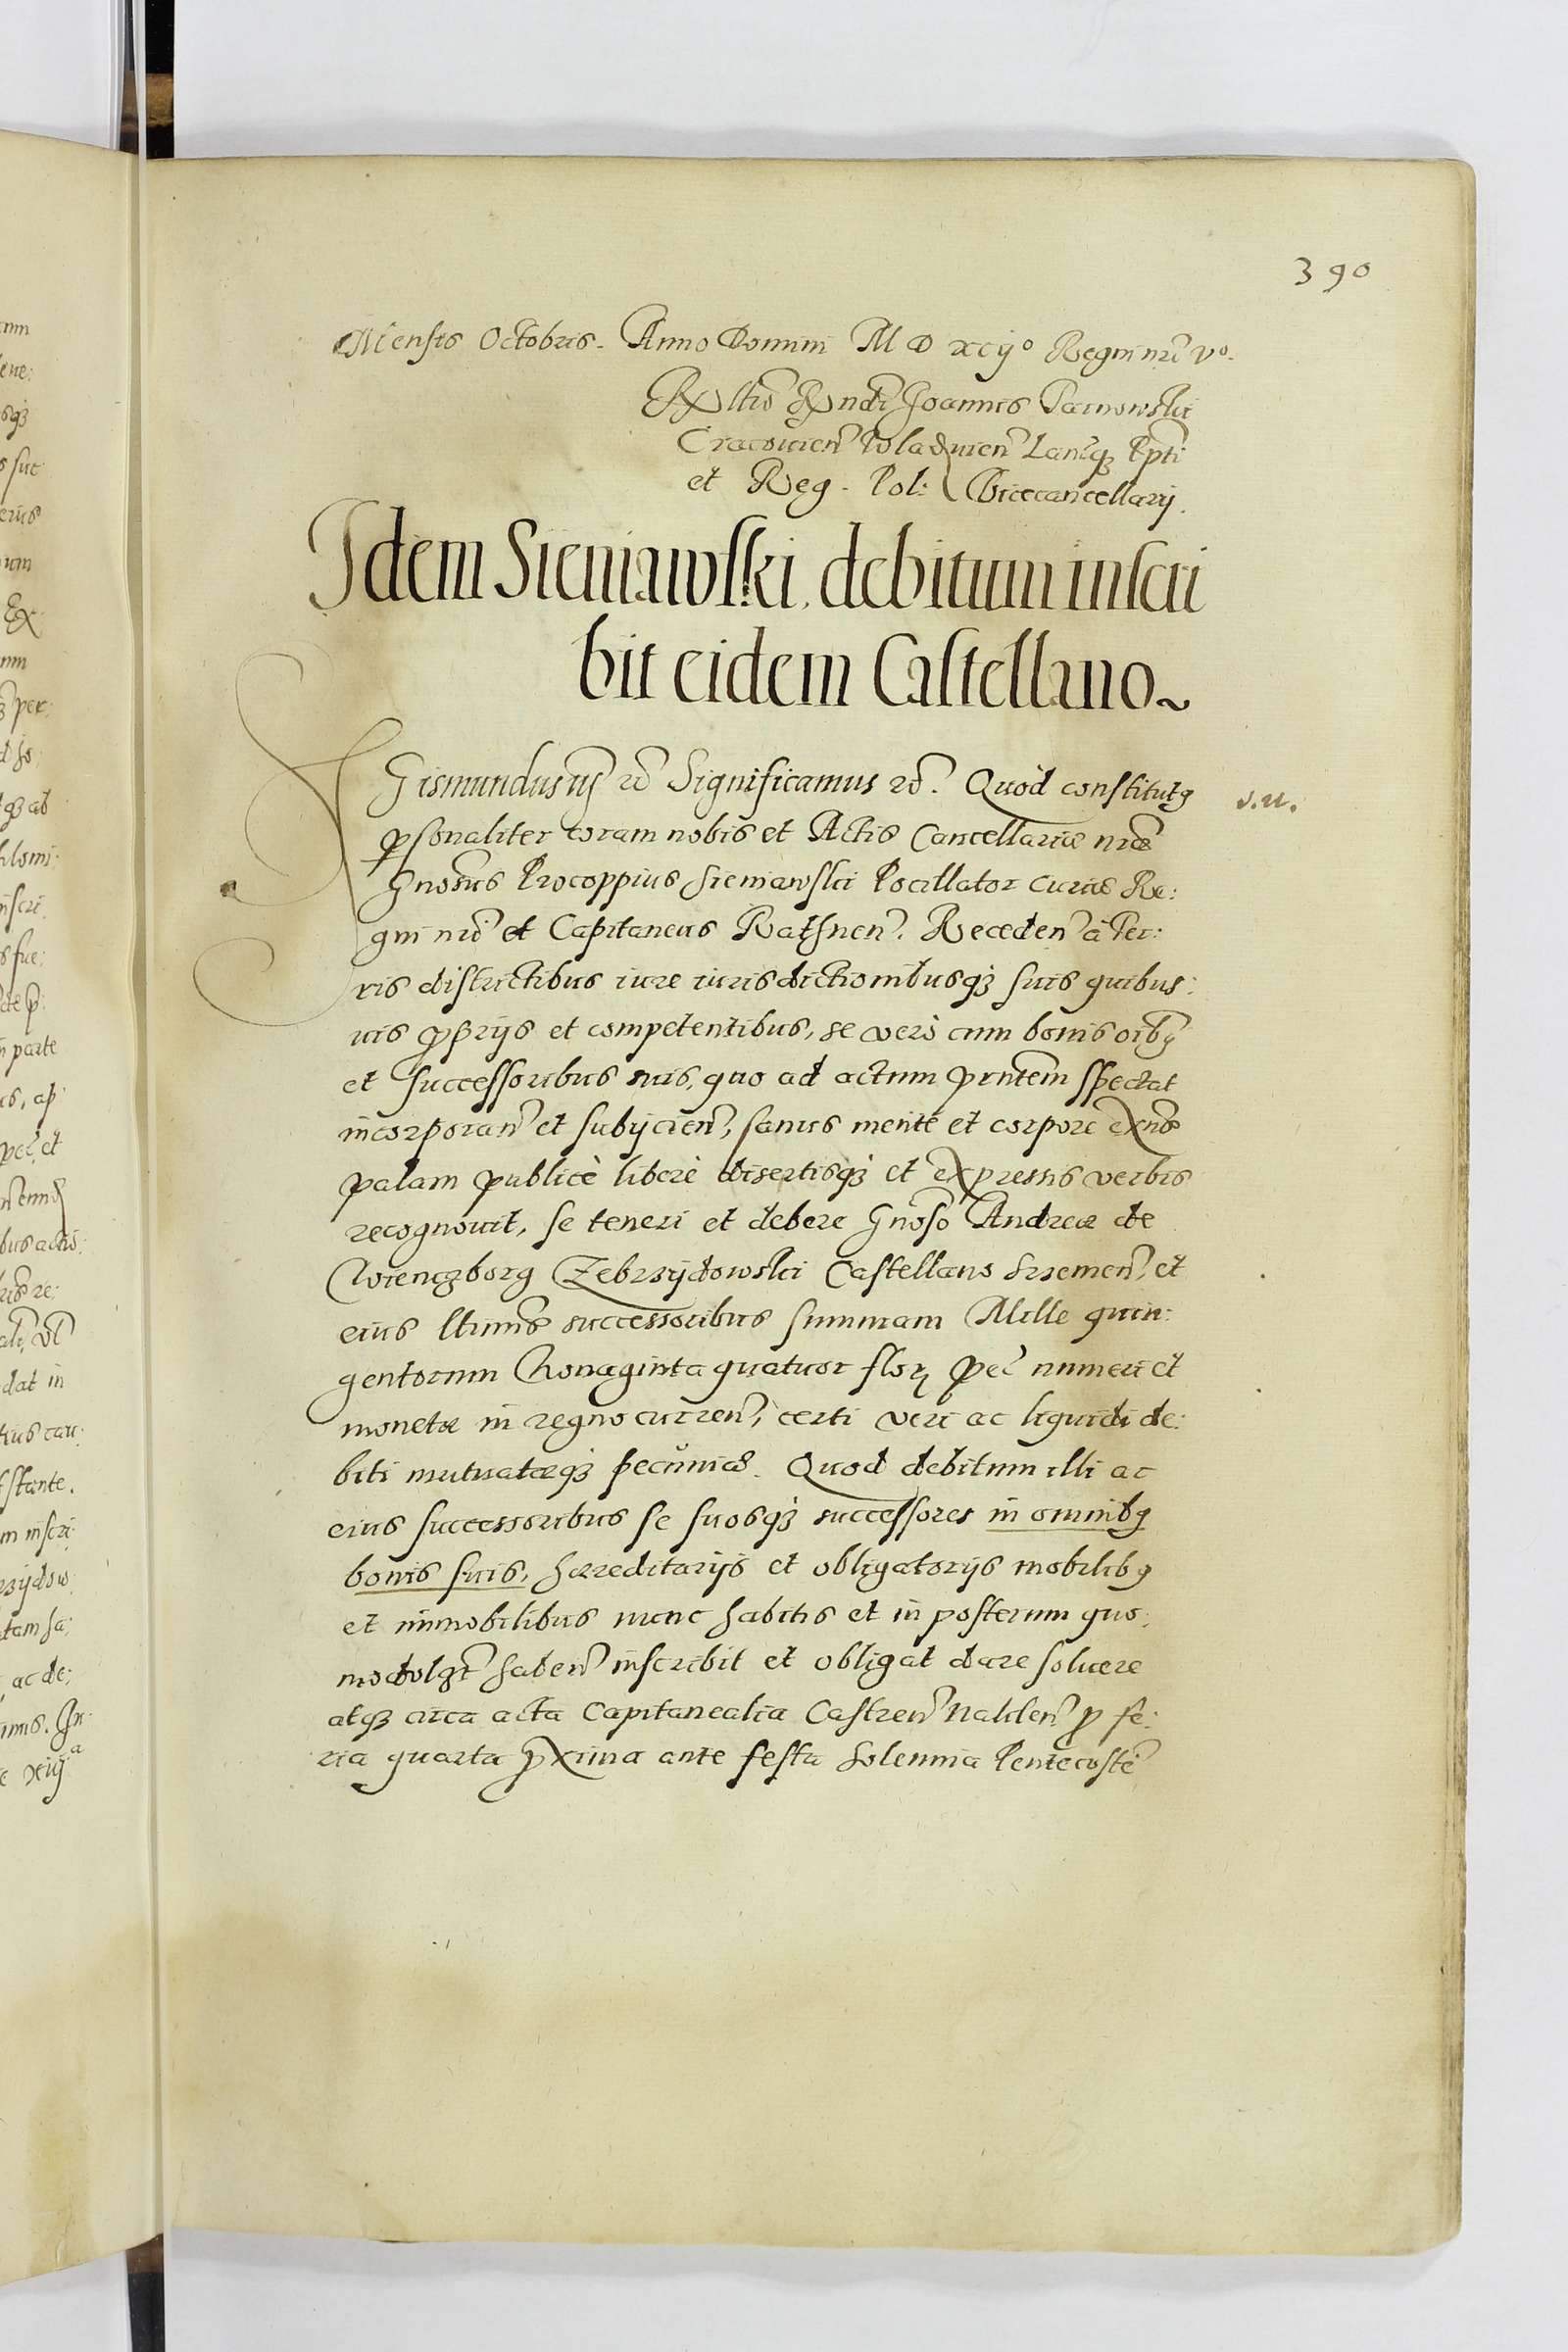 390
Mensis Octobris. Anno Domini M D xcij° Regni nri v°.
Ex ltis Rndi Joannis Tarnowski
Cracovien Wladvien Lanq3 Ppti
et Reg. Pol: Vicecancellarij.
Idem Sieniawski, debitum inscri
bit eidem Castellano~
Sigismundus iij &c Significamus &c. Quod constitutq
psonaliter coram nobis et Actis Cancellariæ nræ
Gnosus Procoppius Sieniawski Pocillator Curiæ Re:
gni nri et Capitaneus Rathnen. Receden à Ter:
ris districtibus iure iurisdictionibusq3 suis quibus:
vis pprijs et competentibus, se verò cum bonis oibq
et successoribus suis, quo ad actum pntem spectat
incorporan et subijcien, sanus mente et corpore exns
palam publicè liberè disertisq3 et expressis verbis
recognovit, se teneri et debere Gnoso Andreæ de
Wiencborg Zebrzijdowski Castellano Srzemen, et
eius ltimis successoribus summam Mille quin:
gentorum Nonaginta quatuor flor pec numeri et
monetæ in regno curren, certi veri ac liquidi de:
biti mutuatæq3 pecŭniæ. Quod debitum illi ac
eius successoribus se suosq3 successores in omnibq
bonis suis, hæreditarijs et obligatorijs mobilibq
et immobilibus nunc habitis et in posterum quo:
modolzt haben inscribit et obligat dare solvere
atq3 circa acta Capitanealia Castren Naklen p fe:
ria quarta pxima ante festa Solennia Pentecoste
s.n.